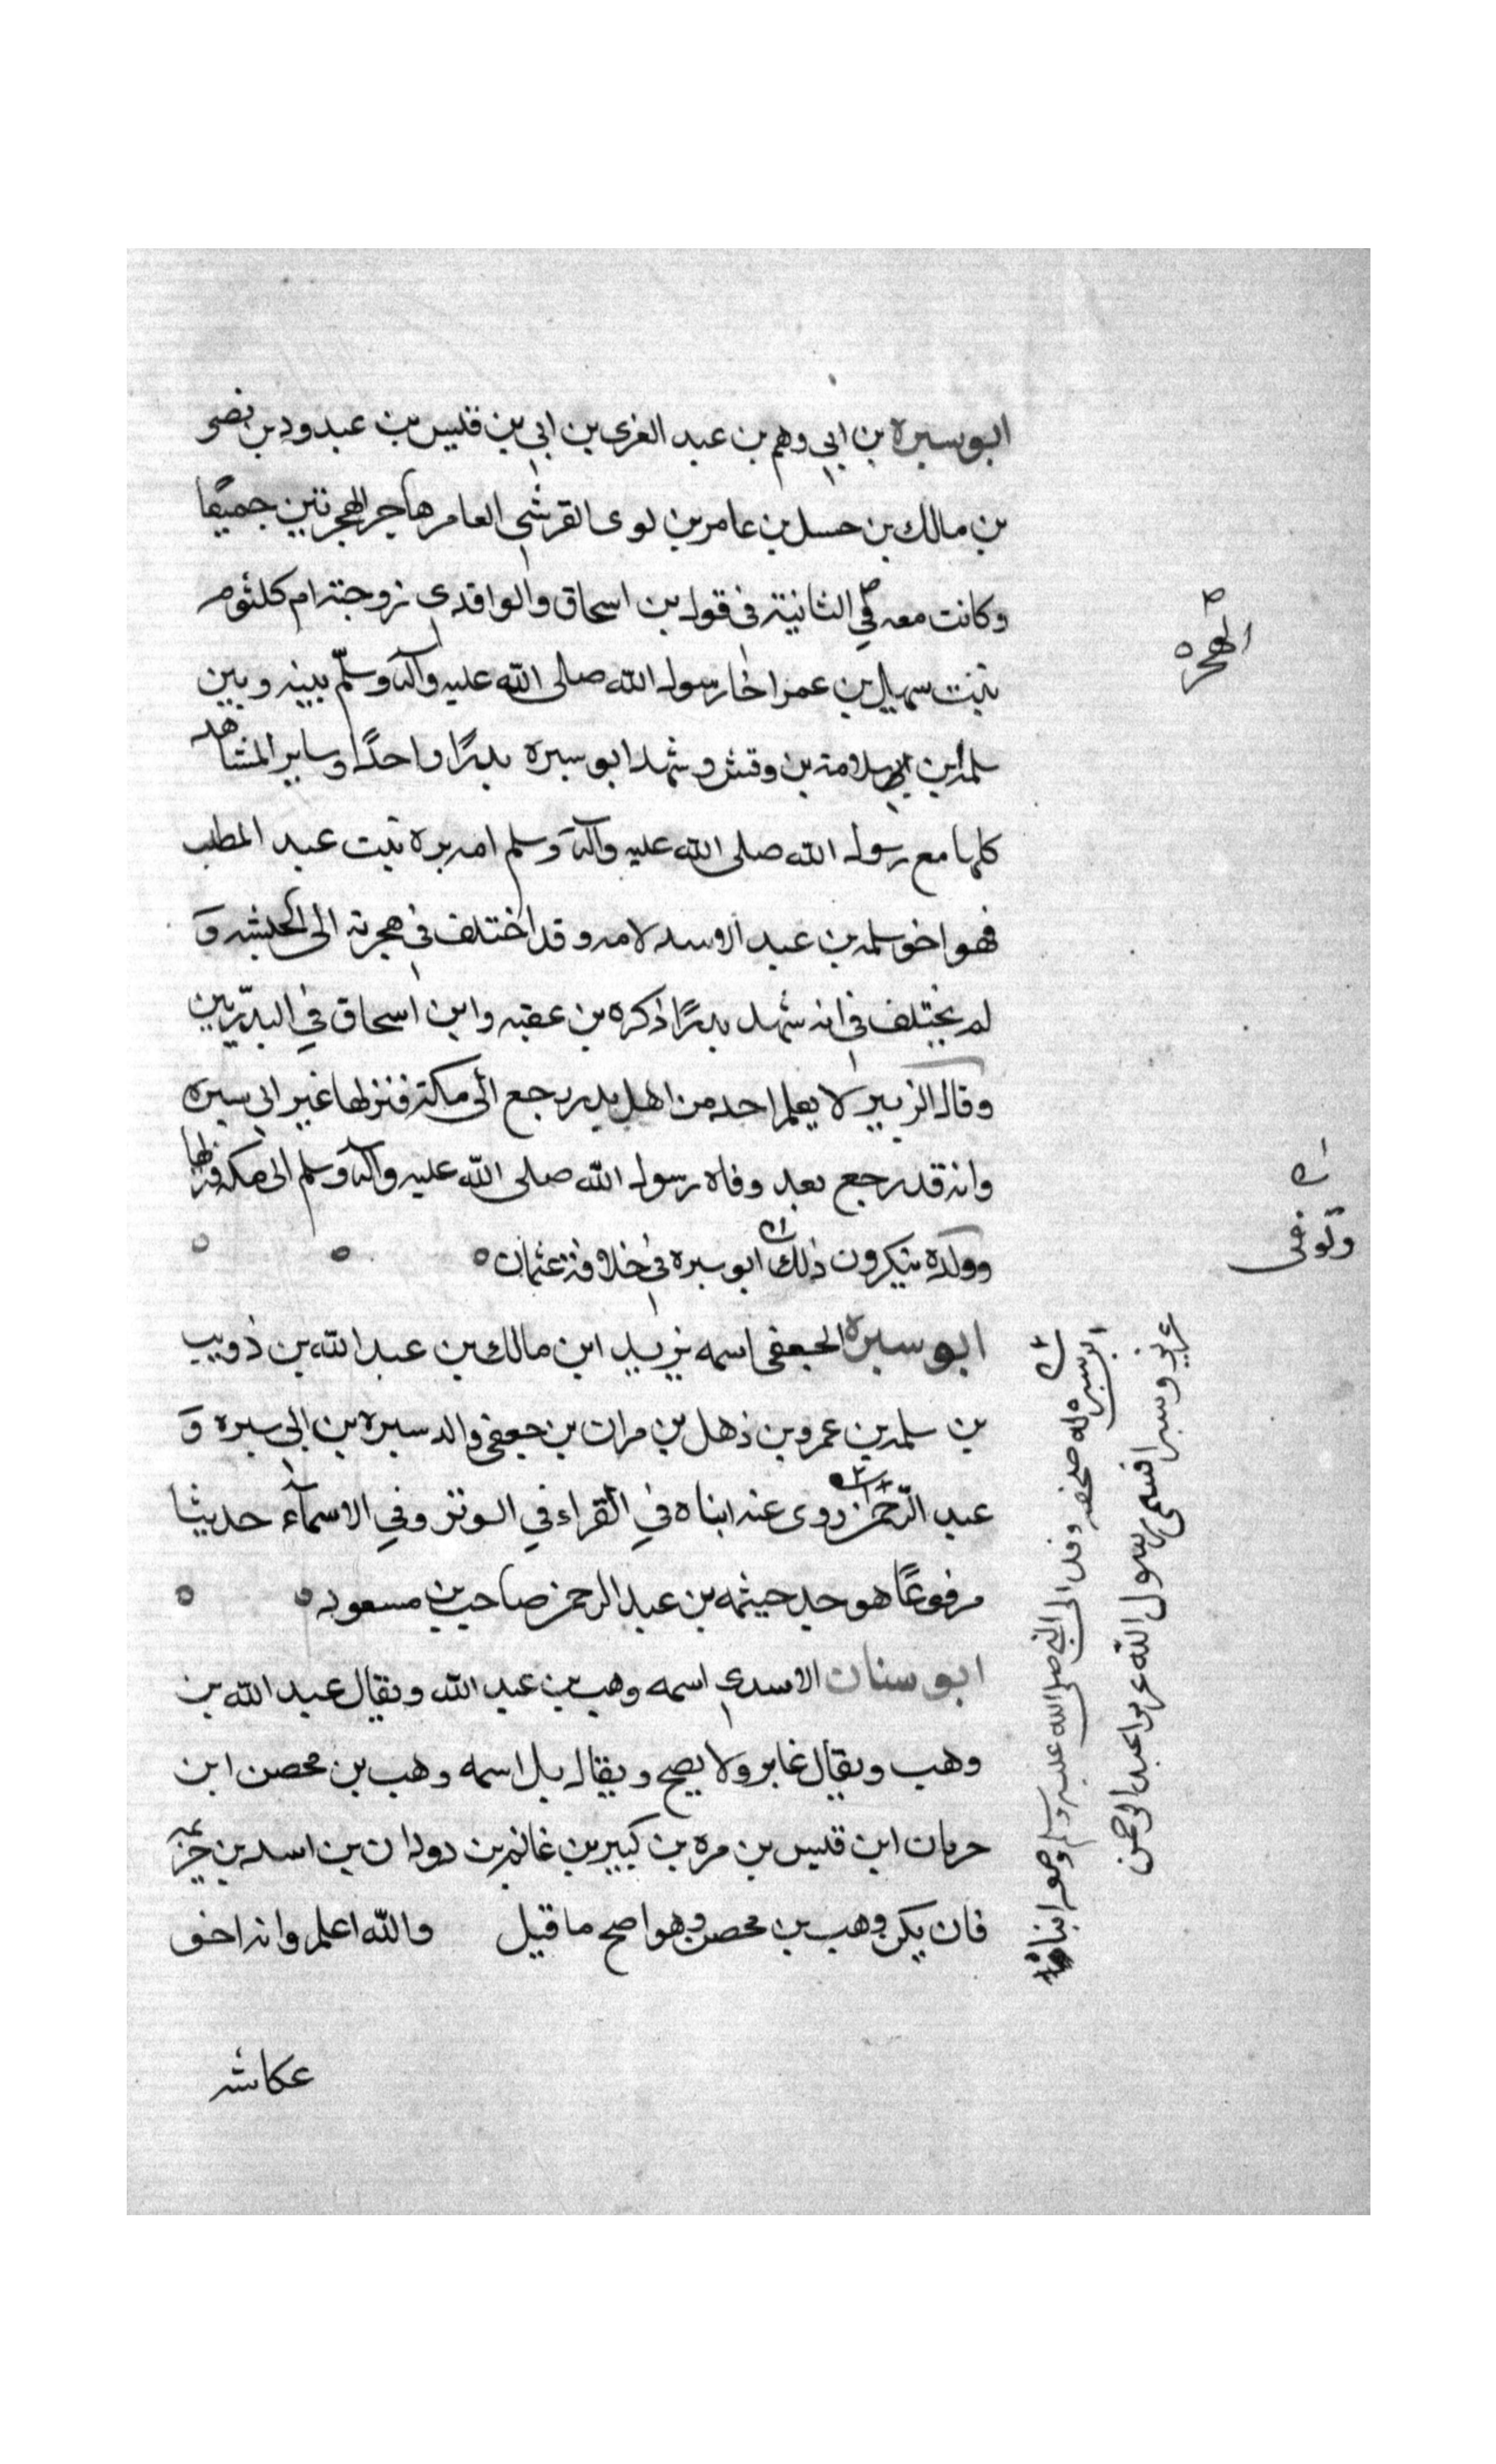 ابو سبره بن ابي وهم بن عبد العزى بن ابي بن قليس بن عبدود بن نصر
بن مالك بن حسل بن عامر بن لوى القرشي العامر هاجر الهجرتين جميعًا
وكانت معه في الثانية في قول بن اسحاق والواقدي زوجته ام كلثوم
بنت سهيل بن عمر اخا رسول الله صلى الله عليه وآله وسلّم بينه وبين
سلمه بن سلامة بن وقش وشهد ابو سبره بدرًا واحدًا وساير المشاهد
كلها مع رسول الله صلى الله عليه وآله وسلم امه بره بنت عبد المطلب
فهو اخو سلمه بن عبد الاسد لامه وقد اختلف في هجرته الى الحبشه و
لم يختلف في انه شهد بدرًا ذكره بن عقبه وابن اسحاق في البدريين
وقال الزبير لا يعلم احد من اهل بدر رجع الى مكة فنزلها غير ابي سبره
وانه قد رجع بعد وفاه رسول الله صلى الله عليه وآله وسلم الى مكه فنزلها
وولده ينكرون ذلك ابو سبره في خلافة عثمان
ابو سبره الجعفي اسمه يزيد ابن مالك بن عبد الله بن ذويب
بن سلمه بن عمرو بن ذهل بن مران بن جعفي والد سبره بن ابي سبره و
عبد الرّحمن روى عنه ابناه في القراء في الوتر وفي الاسمآء حديثا
مرفوعًا هو جد حيثمه بن عبد الرحمن صاحب بن مسعود
ابو سنان الاسدي اسمه وهب بن عبد الله ويقال عبد الله بن
وهب ويقال عامر ولا يصح ويقال بل اسمه وهب بن محصن ابن
حرمان ابن قيس بن مره بن كبير بن غانم بن دودان بن اسد بن خزيمه
فان يكن وهب بن محصن وهو اصح ما قيل والله اعلم وانه اخو
عكاشه
الهجره
وتوفى
ابو سبره له صحبه وفد الى النبي صلى الله عليه وسلم ومعه ابناه
عزيز وسبرا فسمى رسول الله عزيرا عبد الرحمن